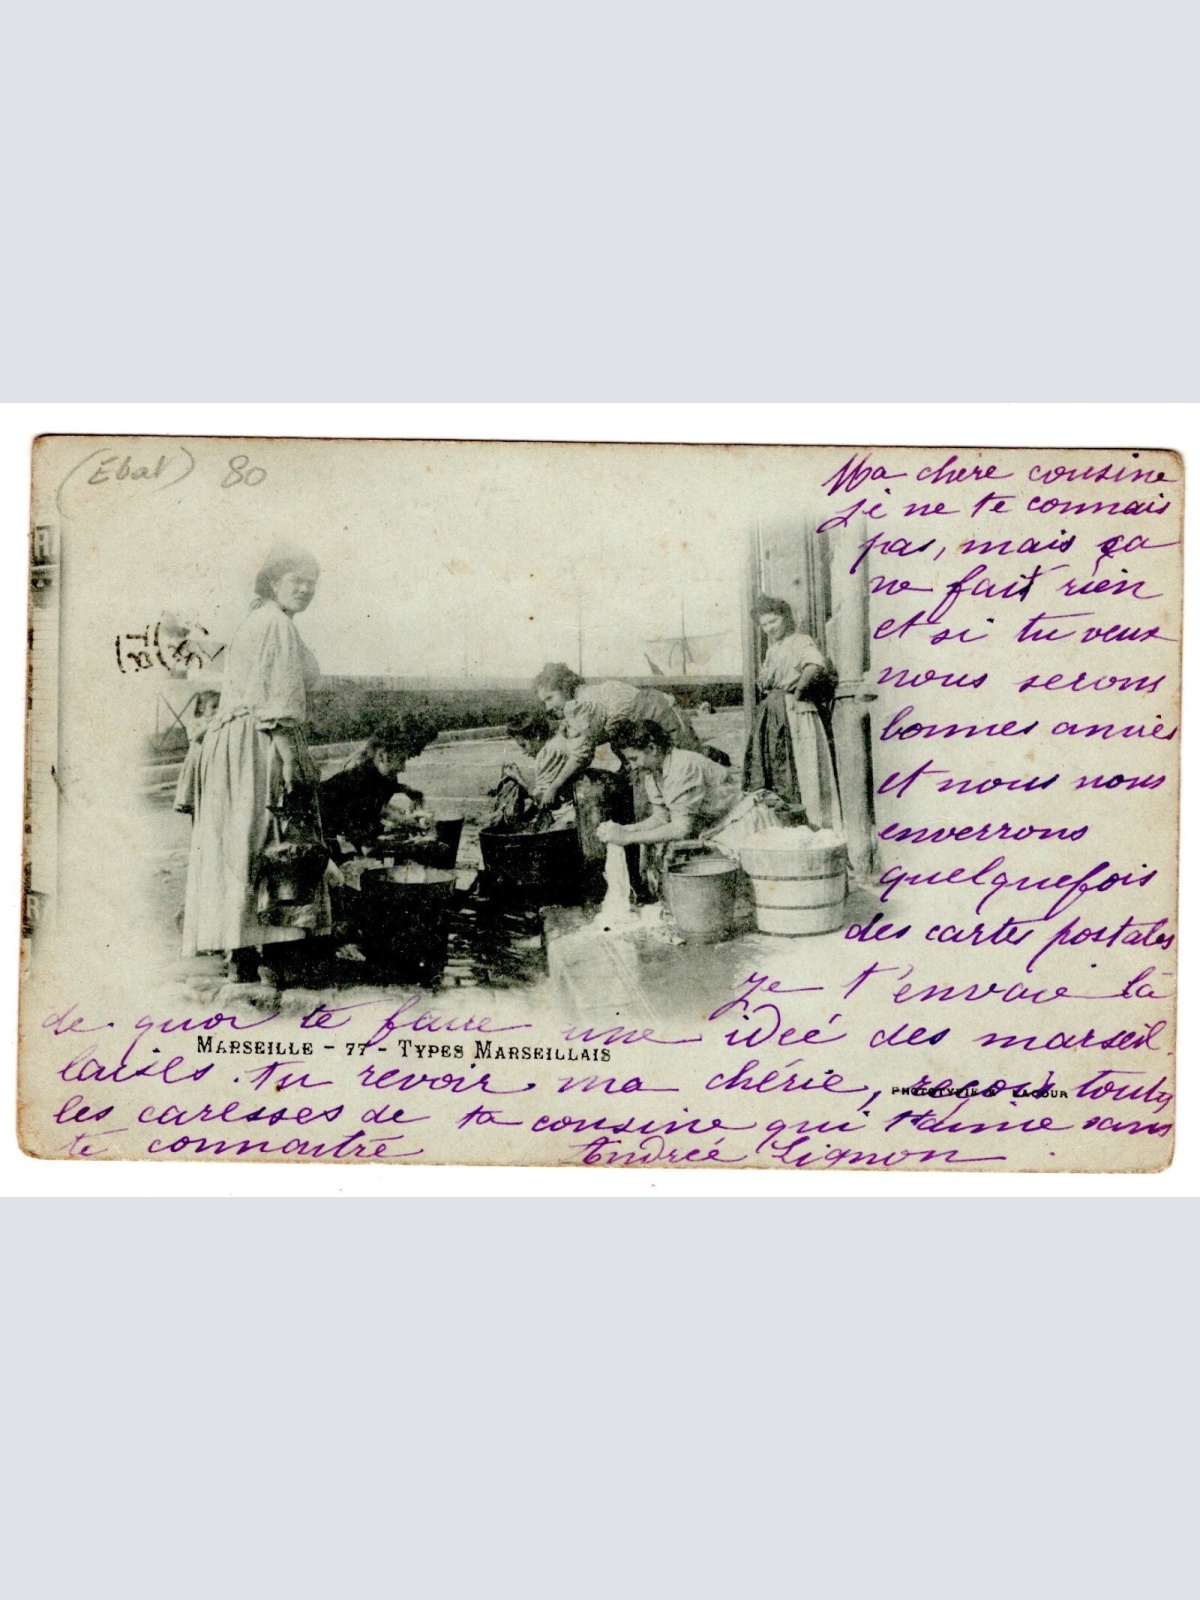 (Ebat) 80
Ma chère cousine
je ne te connais
pas, mais ça
ne fait rien
et si tu veux
nous serons
bonnes amies
et nous nous
enverrons
quelquefois
des cartes postales
Je t'envoie là
de quoi te faire une ideé des marseil.
MARSEILLE - 77 - TYPES MARSEILLAIS
laises. Au revoir ma chérie, reçois toutes
PHOTOTYPIE LACOUR
les caresses de ta cousine qui t'aime sans
te connaitre Andrée Lignon